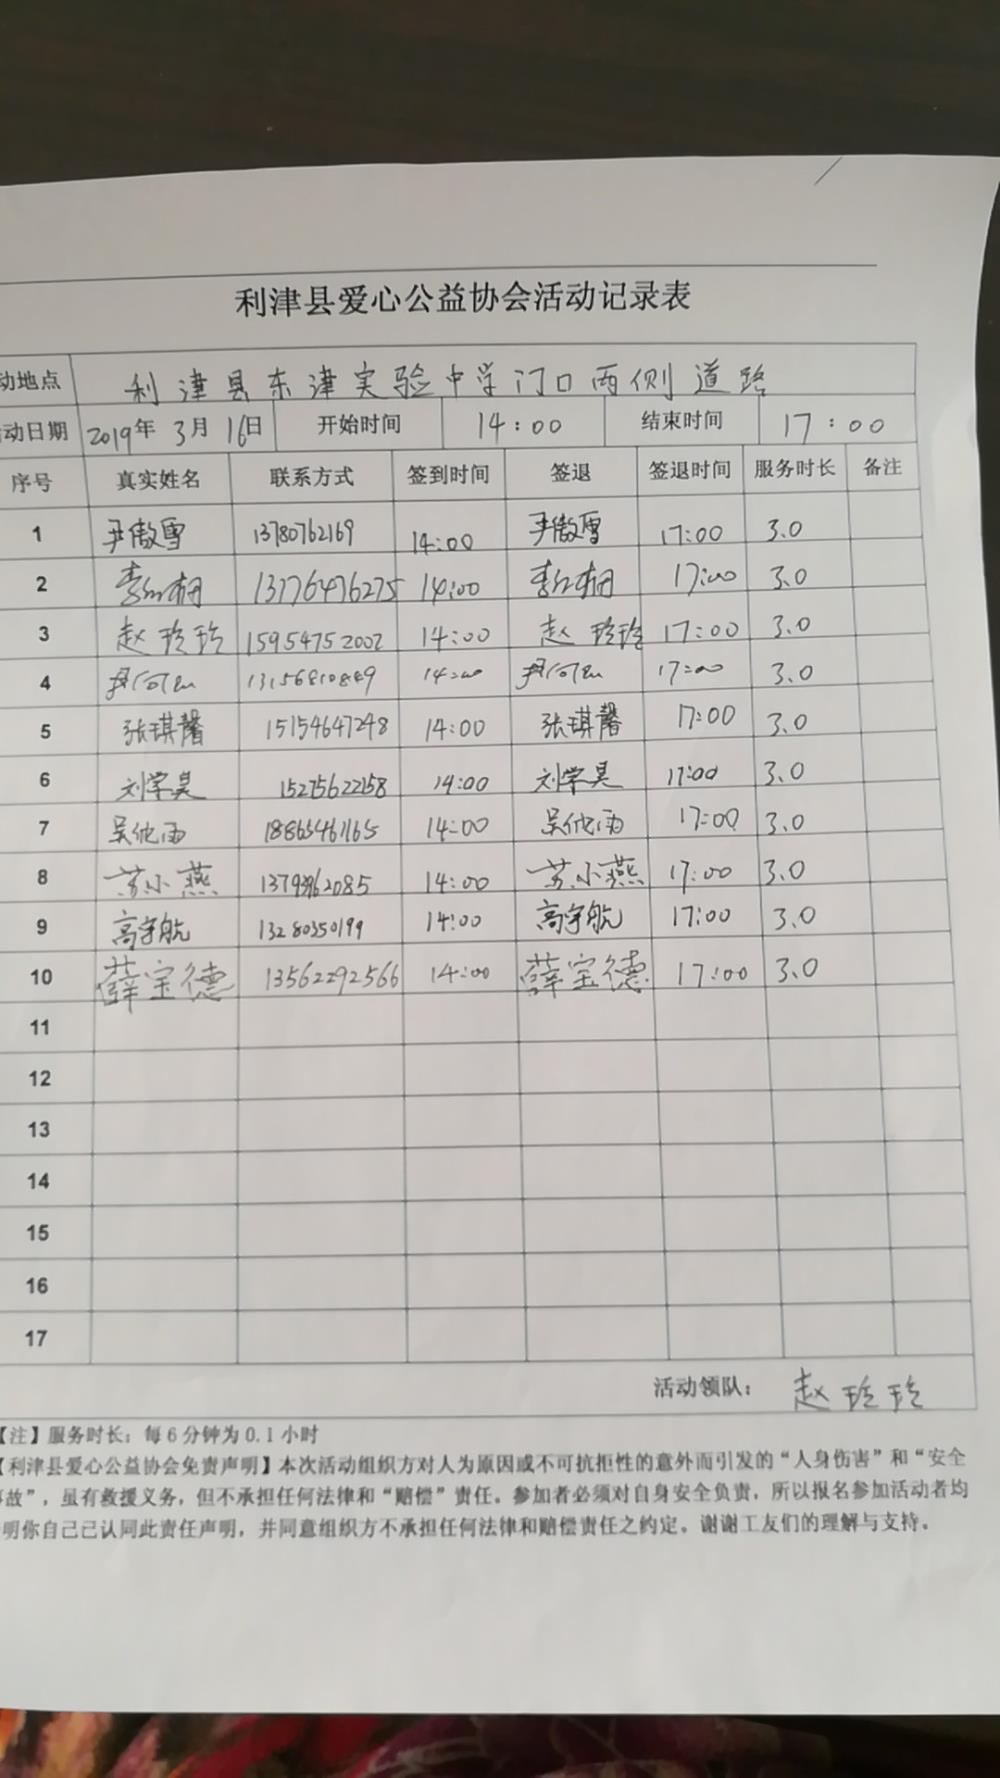 利津县爱心公益协会活动记录表
动地点 利津县东津实验中学门口两侧道路
动日期 2019年 3月 16日 开始时间 14:00 结束时间 17:00
序号 真实姓名 联系方式 签到时间 签退 签退时间 服务时长 备注
1 尹傲雪 13780762169 14:00 尹傲雪 17:00 3.0
2 14:00 17:00 3.0
3 赵玲玲 15954752002 14:00 赵玲玲 17:00 3.0
4 14:00 17:00 3.0
5 张琪馨 15154647248 14:00 张琪馨 17:00 3.0
6 刘学昊 15275622158 14:00 刘学昊 17:00 3.0
7 14:00 17:00 3.0
8 苏小燕 14:00 苏小燕 17:00 3.0
9 高宇航 13280350199 14:00 高宇航 17:00 3.0
10 薛宝德 13562292566 14:00 薛宝德 17:00 3.0
11
12
13
14
15
16
17
活动领队: 赵玲玲
【注】服务时长：每6分钟为0.1小时
【利津县爱心公益协会免责声明】本次活动组织方对人为原因或不可抗拒性的意外而引发的“人身伤害”和“安全
事故”，虽有救援义务，但不承担任何法律和“赔偿”责任。参加者必须对自身安全负责，所以报名参加活动者均
明你自己已认同此责任声明，并同意组织方不承担任何法律和赔偿责任之约定。谢谢工友们的理解与支持。